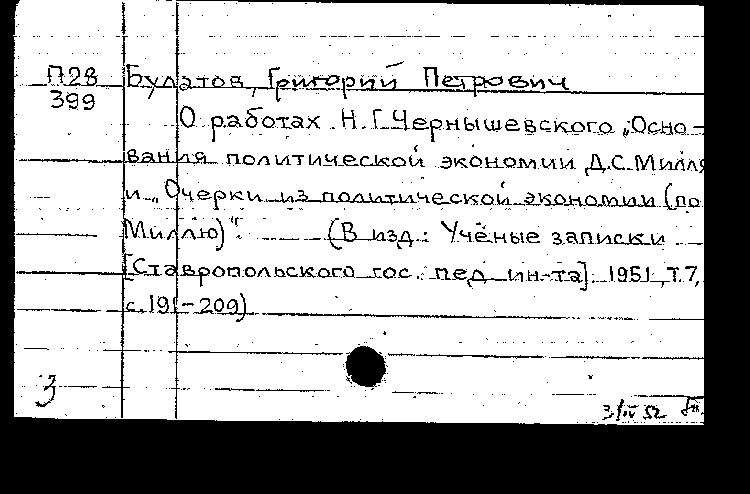 П28 Булатов, Григорий Петрович
399
О работах Н.Г.Чернышевского „Осно-
вания политической экономии Д.С.Милля
и „Очерки из политической экономии (по
Миллю)". (В изд.: Учёные записки
[Ставропольского гос. пед. ин-та]. 1951, Т.7,
с.191-209)
3
3/IV 52